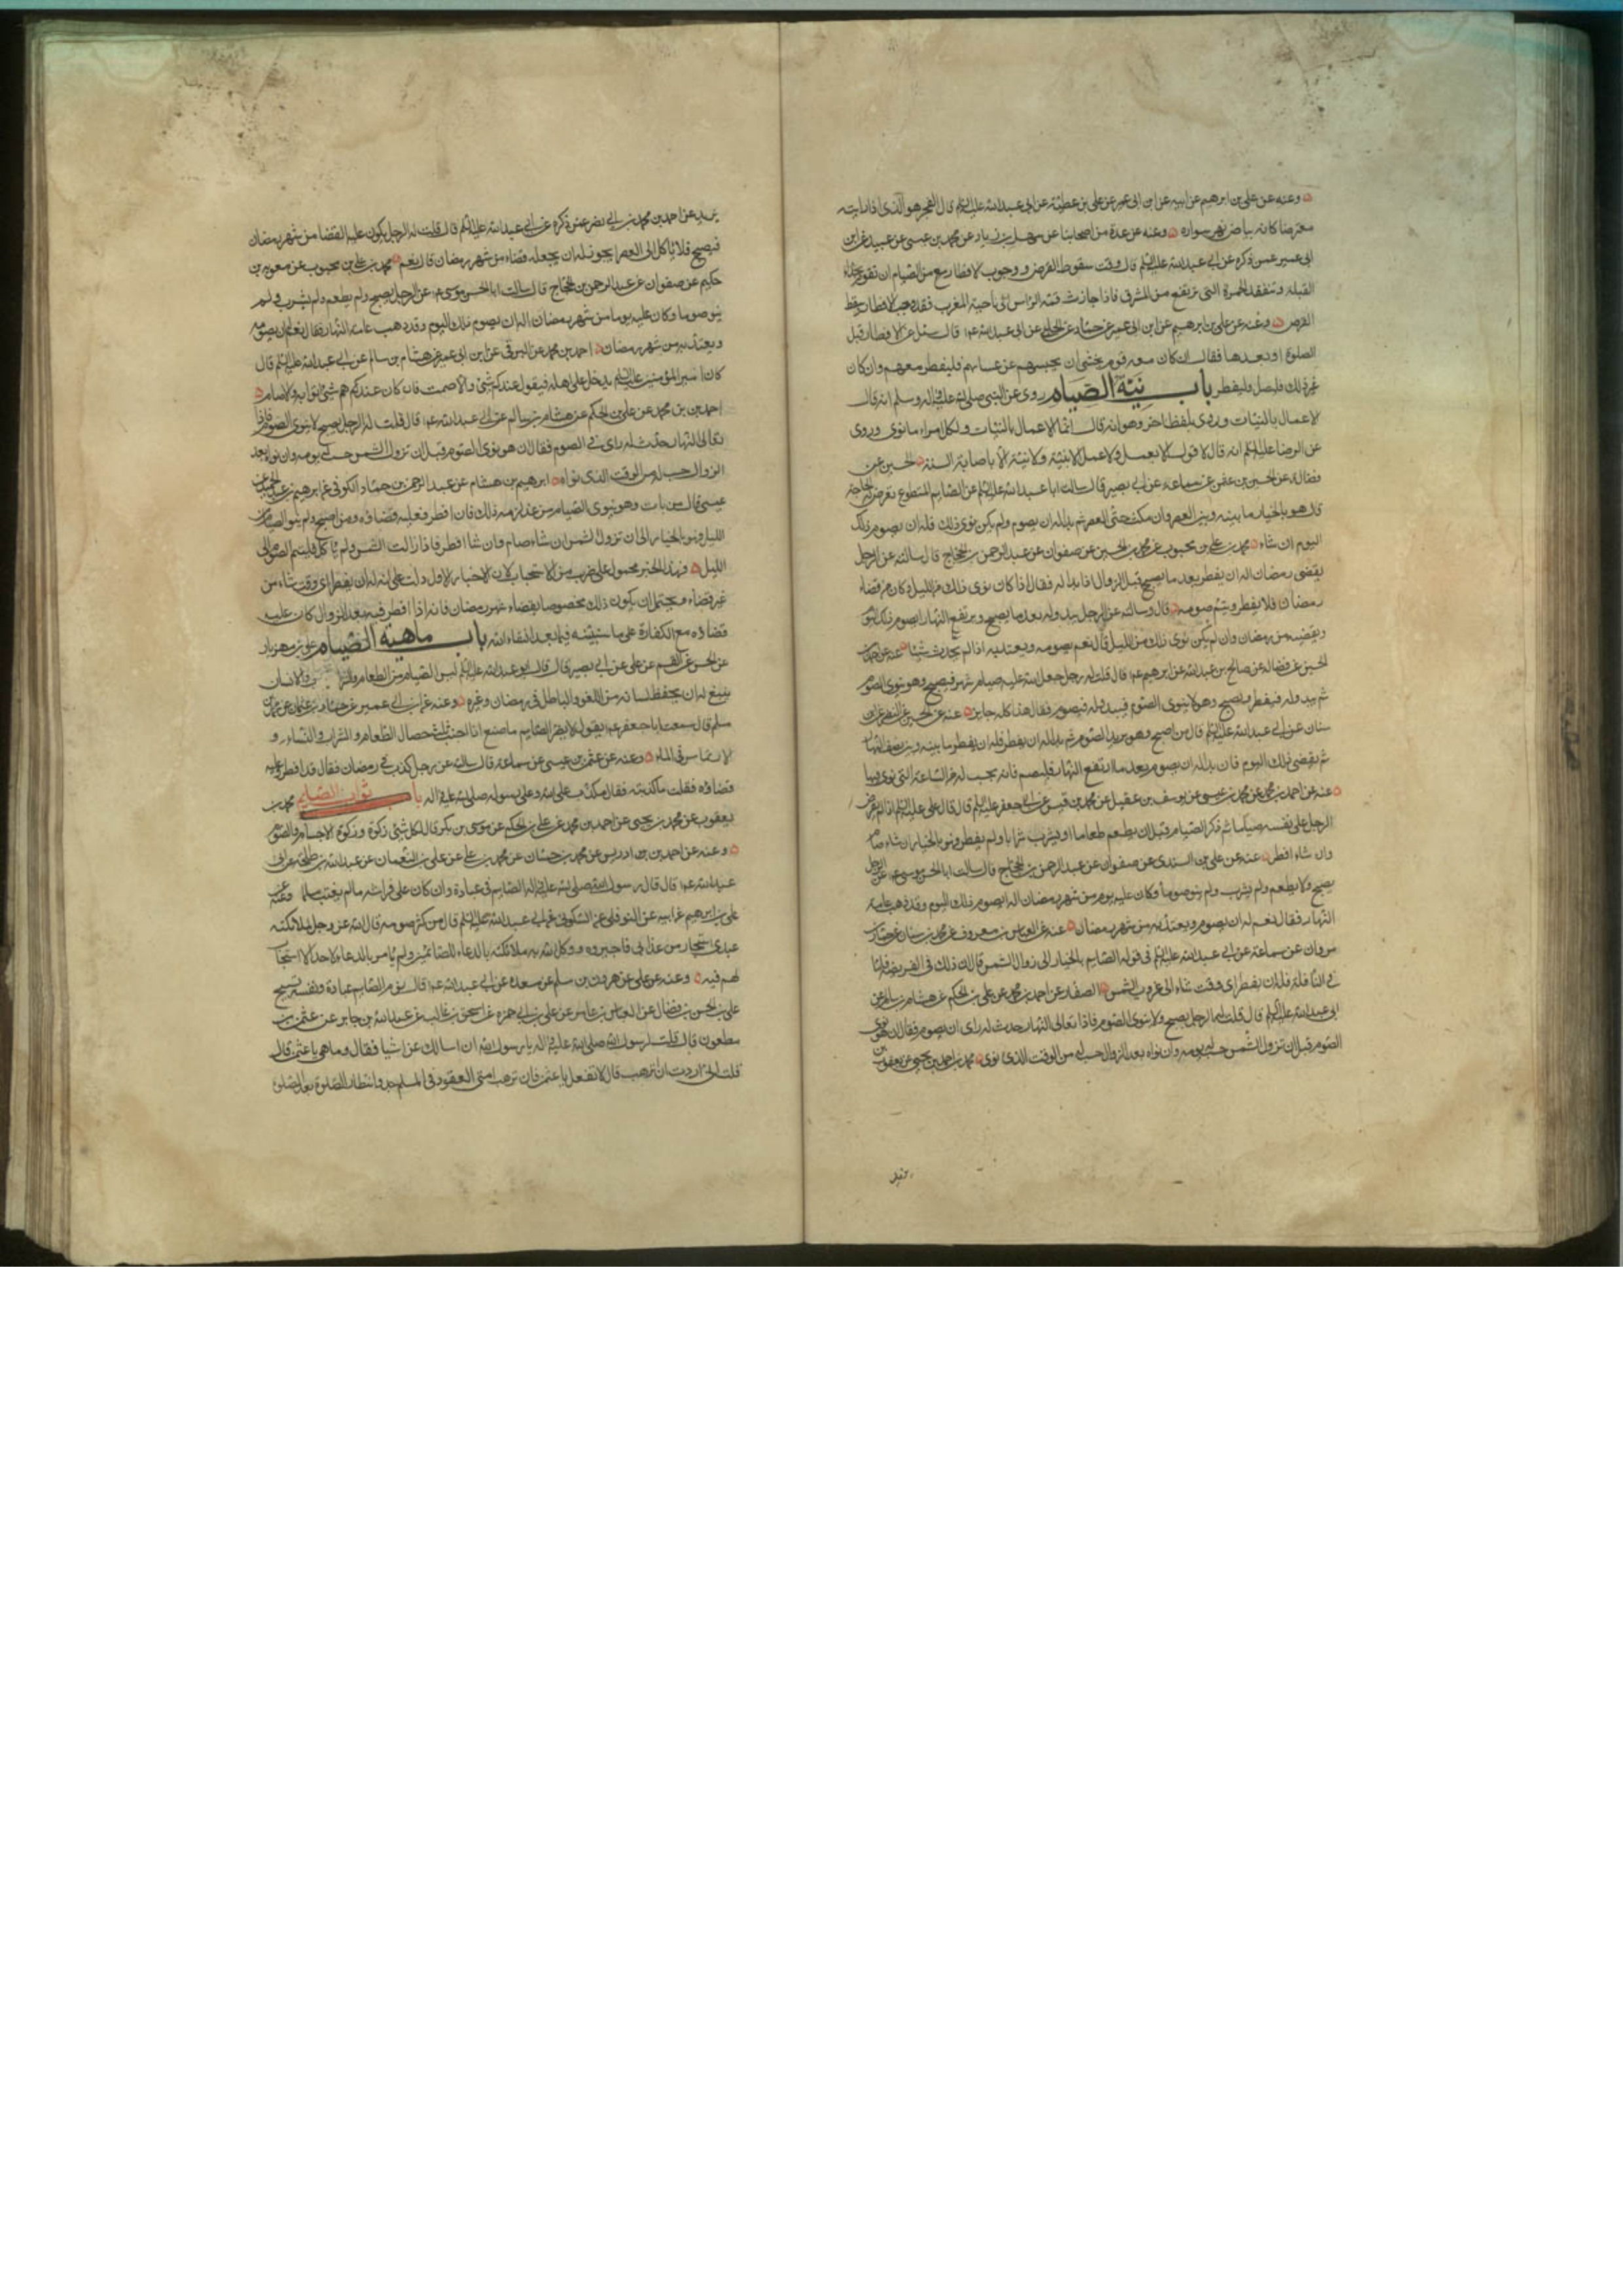 وعنه عن علي بن ابرهيم عن ابيه عن ابن ابي عمير عن علي بن عطية عن ابي عبد الله عليه السلم قال الفجر هو الذي اذا رايته
معترضا كانه بياض نهر سوراء وعنه عن عدة من اصحابنا عن سهل بن زياد عن محمد بن عيسى عن عبيد عن ابن
ابي عمير عمن ذكره عن ابي عبد الله عليه السلم قال وقت سقوط القرص ووجوب الافطار مع من الصيام ان تقوم بحذاء
القبلة وتتفقد الحمرة التي ترتفع من المشرق فاذا جازت قمة الراس الى ناحية المغرب فقد وجب الافطار وسقط
القرص وعنه عن علي بن ابرهيم عن ابن ابي عمير عن حماد عن الحلبي عن ابي عبد الله ع قال سئل عن الافطار قبل
الصلوة او بعدها فقال ان كان معه قوم يخشى ان يحبسهم عن عشائهم فليفطر معهم وان كان
غير ذلك فليصل وليفطر باب نية الصيام روى عن النبي صلى الله عليه واله وسلم انه قال
الاعمال بالنيات وروى بلفظ اخر وهو انه قال انما الاعمال بالنيات ولكل امراء ما نوى وروى
عن الرضا عليه السلم انه قال لا قول الا بعمل ولا عمل الا بنية ولا نية الا باصابة السنة الحسين عن
فضالة عن الحسين بن عثمن عن سماعة عن ابي بصير قال سالت ابا عبد الله عليه السلم عن الصايم المتطوع تعرض له الحاجة
قال هو بالخيار ما بينه وبين العصر وان مكث حتى العصر ثم بدا له ان يصوم ولم يكن نوى ذلك فله ان يصوم ذلك
اليوم ان شاء محمد بن علي بن محبوب عن محمد بن الحسين عن صفوان عن عبد الرحمن بن الحجاج قال سالته عن الرجل
يقضي رمضان اله ان يفطر بعد ما يصبح قبل الزوال اذا بدا له فقال اذا كان نوى ذلك من الليل وكان من قضاء
رمضان فلا يفطر ويتم صومه قال وسالته عن الرجل يبدو له بعد ما يصبح ويرتفع النهار ايصوم ذلك اليوم
ويقضيه من رمضان وان لم يكن نوى ذلك من الليل قال نعم يصومه ويعتد به اذا لم يحدث شيئا عنه عن
الحسين عن فضالة عن صالح بن عبد الله عن ابي ابرهيم ع قال قلت له رجل جعل لله عليه صيام شهر فيصبح وهو ينوي الصوم
ثم يبدو له فيفطر ويصبح وهو لا ينوي الصوم فيبدو له فيصوم فقال هذا كله جايز عنه عن الحسين عن النضر عن ابن
سنان عن ابي عبد الله عليه السلم قال من اصبح وهو يريد الصوم ثم بدا له ان يفطر فله ان يفطر ما بينه وبين نصف النهار
ثم يقضي ذلك اليوم فان بدا له ان يصوم بعد ما ارتفع النهار فليصم فانه يحسب له من الساعة التي نوى فيها
عنه عن احمد بن محمد عن محمد بن عيسى عن يوسف بن عقيل عن محمد بن قيس عن ابي جعفر عليه السلم قال قال علي عليه السلم اذا لم يفرض
الرجل على نفسه صياما ثم ذكر الصيام قبل ان يطعم طعاما او يشرب شرابا ولم يفطر فهو بالخيار ان شاء صام
وان شاء افطر عنه عن علي بن السندي عن صفوان عن عبد الرحمن بن الحجاج قال سالت ابا الحسن موسى ع عن الرجل
يصبح ولا يطعم ولم يشرب ولم ينو صوما وكان عليه يوم من شهر رمضان اله ان يصوم ذلك اليوم وقد ذهب عامة
النهار فقال نعم له ان يصوم ويعتد به من شهر رمضان عنه عن العباس بن معروف عن محمد بن سنان عن عمار بن
مروان عن سماعة عن ابي عبد الله عليه السلم في قوله الصايم بالخيار الى زوال الشمس قال ان ذلك في الفريضة فاما
في النافلة فله ان يفطر اي وقت شاء الى غروب الشمس الصفار عن احمد بن محمد عن علي بن الحكم عن هشام بن سالم عن
ابي عبد الله عليه السلم قال قلت له الرجل يصبح ولا ينوي الصوم فاذا تعالى النهار حدث له راى ان يصوم فقال ان هو نوى
الصوم قبل ان تزول الشمس حسب له يومه وان نواه بعد الزوال حسب له من الوقت الذي نوى محمد بن احمد بن يحيى عن يعقوب بن
يزيد
يزيد عن احمد بن محمد بن ابي نصر عمن ذكره عن ابي عبد الله عليه السلم قال قلت له الرجل يكون عليه القضا من شهر رمضان
فيصبح فلا ياكل الى العصر ايجوز له ان يجعله قضاء من شهر رمضان قال نعم محمد بن علي بن محبوب عن معوية بن
حكيم عن صفوان عن عبد الرحمن بن الحجاج قال سالت ابا الحسن موسى ع عن الرجل يصبح ولم يطعم ولم يشرب ولم
ينو صوما وكان عليه يوما من شهر رمضان اله ان يصوم ذلك اليوم وقد ذهب عامة النهار فقال نعم له ان يصومه
ويعتد به من شهر رمضان احمد بن محمد عن البرقي عن ابن ابي عمير عن هشام بن سالم عن ابي عبد الله عليه السلم قال
كان امير المؤمنين عليه السلم يدخل على اهله فيقول عندكم شئ والا صمت فان كان عندهم شئ اتوا به والا صام
احمد بن محمد عن علي بن الحكم عن هشام بن سالم عن ابي عبد الله ع قال قلت له الرجل يصبح لا ينوي الصوم فاذا
تعالى النهار حدث له راى في الصوم فقال ان هو نوى الصوم قبل ان تزول الشمس حسب له يومه وان نواه بعد
الزوال حسب له من الوقت الذي نواه ابرهيم بن هشام عن عبد الرحمن بن حماد الكوفي عن ابرهيم بن عبد الحميد عن
عيسى قال من بات وهو ينوي الصيام من غد لزمه ذلك فان افطر فعليه قضاؤه ومن اصبح ولم ينو الصيام من
الليل فهو بالخيار الى ان تزول الشمس ان شاء صام وان شا افطر فاذا زالت الشمس ولم ياكل فليتم الصوم الى
الليل فهذا الخبر محمول على ضرب من الاستحباب لان الاخبار الاولة دلت على انه له ان يفطر اي وقت شاء من
غير قضاء ويحتمل ان يكون ذلك مخصوصا بقضاء شهر رمضان فانه اذا افطر فيه بعد الزوال كان عليه
قضاؤه مع الكفارة على ما سنبينه فيما بعد انشاء الله باب ماهية الصيام علي بن مهزيار
عن الحسن عن القسم عن علي عن ابي بصير قال قال ابو عبد الله عليه السلم ليس الصيام من الطعام والشراب والانسان
ينبغي له ان يحفظ لسانه من اللغو والباطل في رمضان وغيره وعنه عن ابن ابي عمير عن حماد بن عثمن عن محمد بن
مسلم قال سمعت ابا جعفر ع يقول لا يضر الصايم ما صنع اذا اجتنب ثلث خصال الطعام والشراب والنساء و
الارتماس في الماء وعنه عن عثمن بن عيسى عن سماعة قال سالته عن رجل كذب في رمضان فقال قد افطر وعليه
قضاؤه فقلت ما كذبته فقال يكذب على الله وعلى رسوله صلى الله عليه واله باب ثواب الصايم محمد بن
يعقوب عن محمد بن يحيى عن احمد بن محمد عن علي بن الحكم عن موسى بن بكر قال لكل شئ زكوة وزكوة الاجسام الصوم
وعنه عن احمد بن ادريس عن محمد بن حسان عن محمد بن علي عن علي بن النعمان عن عبد الله بن طلحة عن ابي
عبد الله ع قال قال رسول الله صلى الله عليه واله الصايم في عبادة وان كان على فراشه ما لم يغتب مسلما وعنه عن
علي بن ابرهيم عن ابيه عن النوفلي عن السكوني عن ابي عبد الله عليه السلم قال من كثر صومه قال الله عز وجل لملائكته
عبدي استجار من عذابي فاجيروه ووكل الله به ملائكته بالدعاء للصائمين ولم يامر بالدعاء لاحد الا استجاب
لهم فيه وعنه عن علي عن هرون بن مسلم عن مسعدة عن ابي عبد الله ع قال نوم الصايم عبادة ونفسه تسبيح
علي بن الحسن بن فضال عن العباس بن عامر عن علي بن ابي حمزة عن اسحق بن غالب عن عبد الله بن جابر عن عثمن بن
مظعون قال قلت لرسول الله صلى الله عليه واله يا رسول الله ان اسالك عن اشيا فقال وما هي يا عثمن قال
قلت اني اردت ان اترهب قال لا تفعل يا عثمن فان ترهب امتي القعود في المساجد وانتظار الصلوة بعد الصلوة